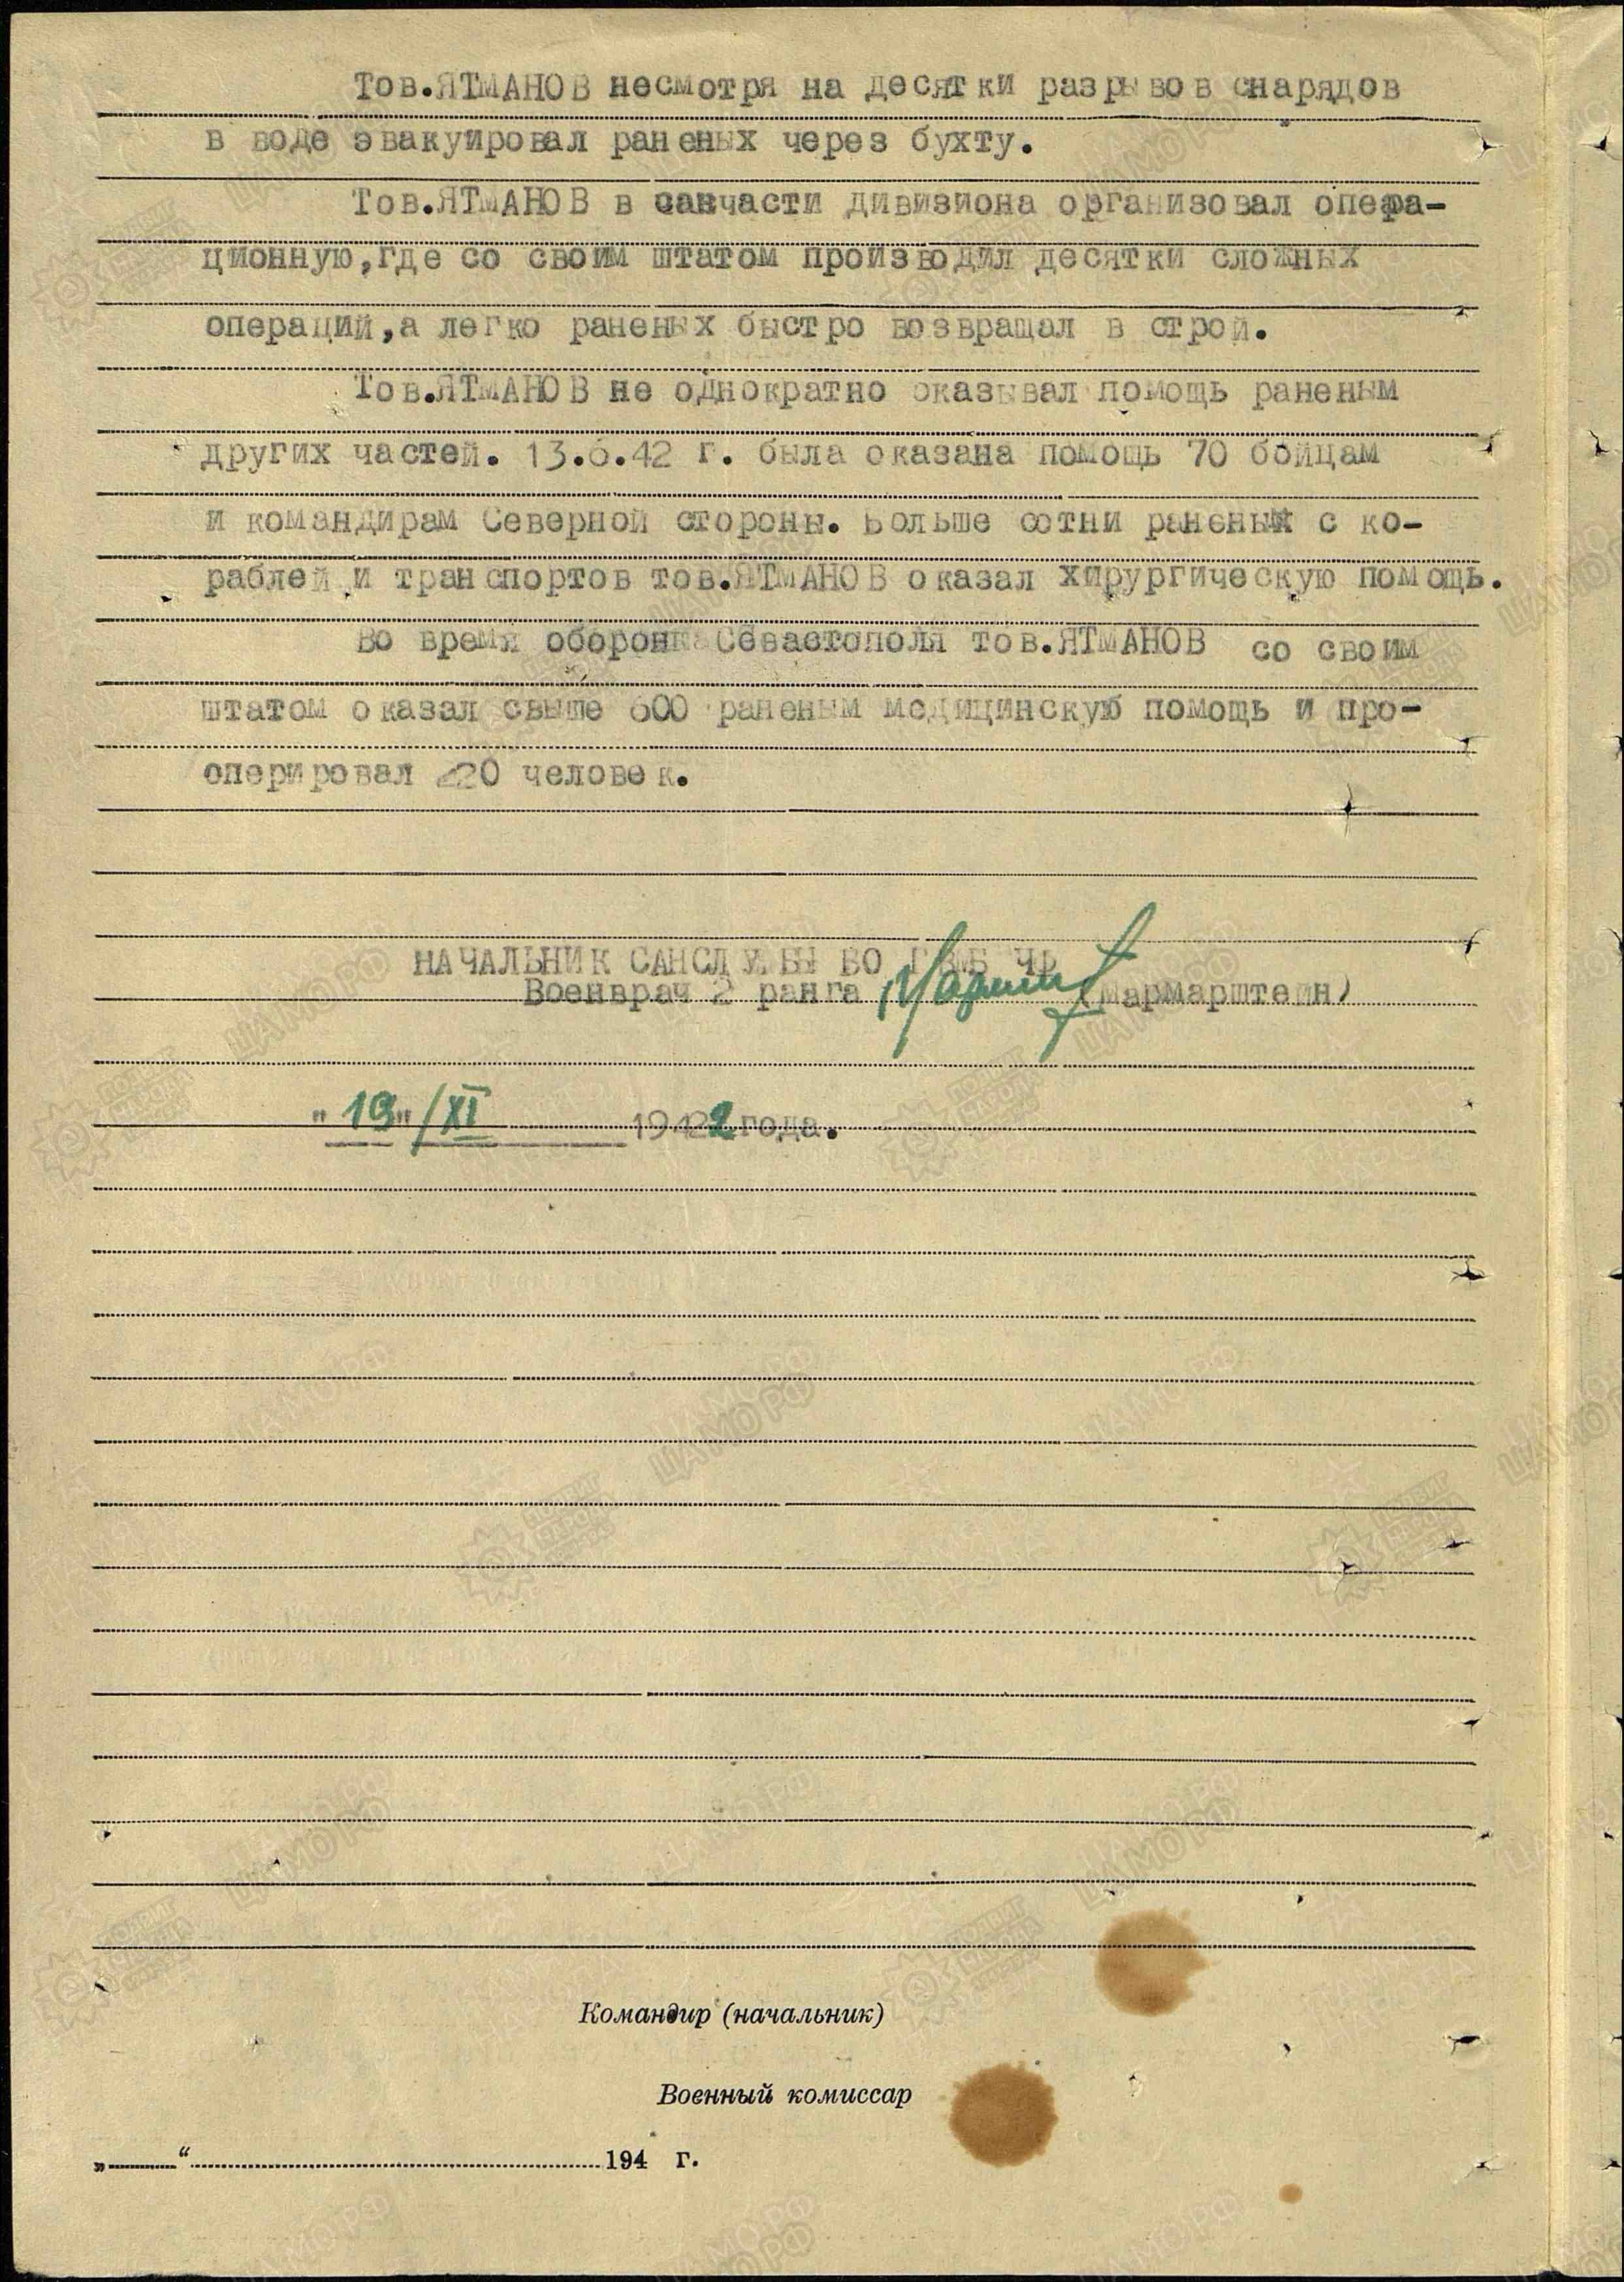 Тов.ЯТМАНОВ несмотря на десятки разрывов снарядов
в воде эвакуировал раненых через бухту.
Тов.ЯТМАНОВ в санчасти дивизиона организовал опера-
ционную,где со своим штатом производил десятки сложных
операций,а легко раненых быстро возвращал в строй.
Тов.ЯТМАНОВ не однократно оказывал помощь раненым
других частей. 13.6.42 г. была оказана помощь 70 бойцам
и командирам Северной стороны. Больше сотни раненых с ко-
раблей и транспортов тов.ЯТМАНОВ оказал хирургическую помощь.
Во время обороны Севастополя тов.ЯТМАНОВ со своим
штатом оказал свыше 600 раненым медицинскую помощь и про-
оперировал 220 человек.
НАЧАЛЬНИК САНСЛУЖБЫ БО ГВМБ ЧФ
Военврач 2 ранга (Мармарштейн)
"19"/XI 1942 года.
Командир (начальник)
Военный комиссар
„ “ 194 г.